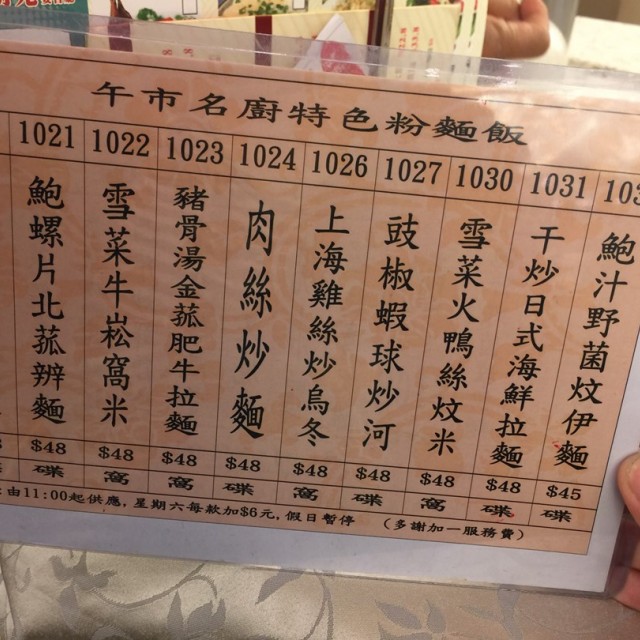 午市名廚特色粉麵飯
1021 1022 1023 1024 1026 1027 1030 1031 103
鮑螺片北菰辨麵
雪菜牛崧窩米
豬骨湯金菰肥牛拉麵
肉絲炒麵
上海雞絲炒烏冬
豉椒蝦球炒河
雪菜火鴨絲炆米
干炒日式海鮮拉麵
鮑汁野菌炆伊麵
$48 $48 $48 $48 $48 $48 $48 $48 $45
碟 窩 窩 碟 窩 碟 窩 碟 碟
由11:00起供應, 星期六每款加$6元, 假日暫停 (多謝加一服務費)